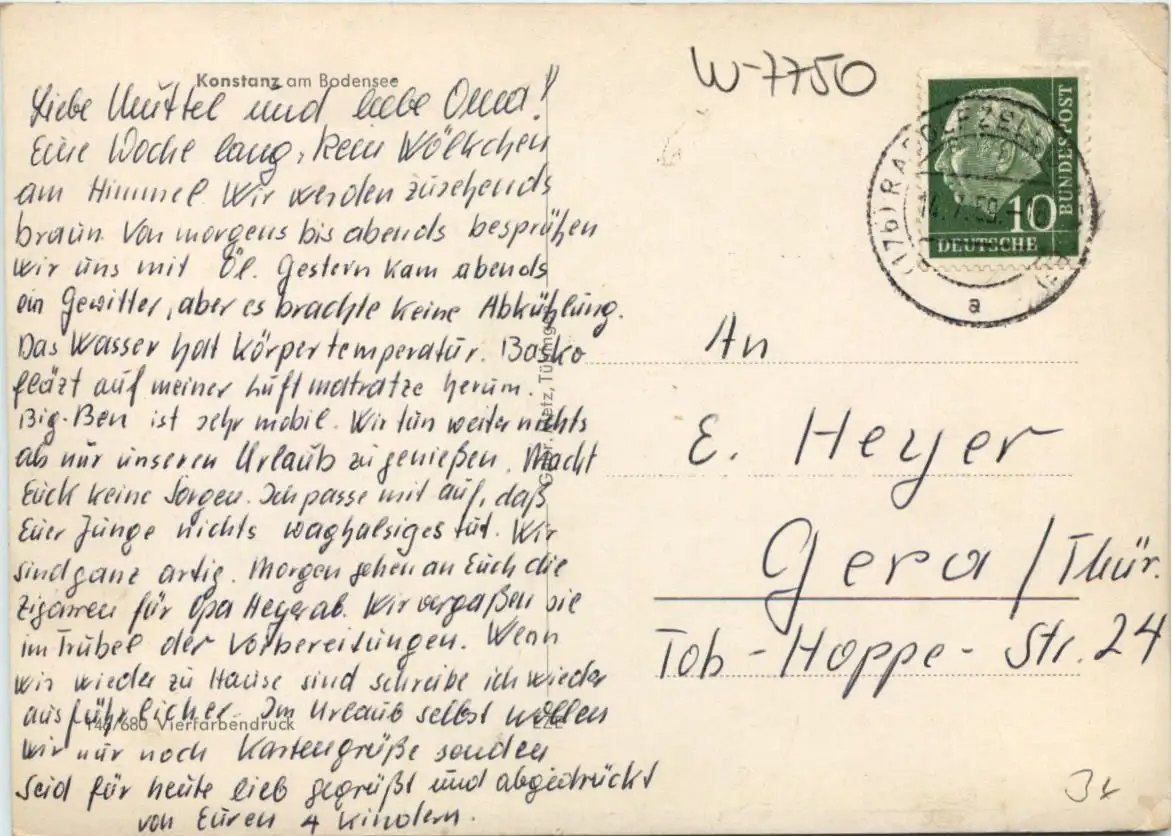 Konstanz am Bodensee
Liebe Muttel und liebe Oma!
Eine Woche lang, kein Wölkchen
am Himmel. Wir werden zusehends
braun. Von morgens bis abends besprühen
wir uns mit Öl. Gestern kam abends
ein Gewitter, aber es brachte keine Abkühlung.
Das Wasser hat Körpertemperatur. Basko
fläzt auf meiner Luftmatratze herum.
Big-Ben ist sehr mobil. Wir tun weiter nichts
als nur unseren Urlaub zu genießen. Macht
Euch keine Sorgen. Ich passe mit auf, daß
Euer Junge nichts waghalsiges tut. Wir
sind ganz artig. Morgen gehen an Euch die
Zigarren für Opa Heyer ab. Wir vergaßen sie
im Trubel der Vorbereitungen. Wenn
wir wieder zu Hause sind schreibe ich wieder
ausführlicher. Im Urlaub selbst wollen
146/680 Vierfarbendruck
wir nur noch Kartengrüße senden
Seid für heute lieb gegrüßt und abgedrückt
von Euren 4 Kindern.
Gebr. Metz, Tübingen
W-7750
(17b) RADOLFZELL
a
10
DEUTSCHE
BUNDESPOST
An
E. Heyer
Gera / Thür.
Tob-Hoppe-Str. 24